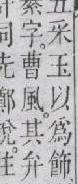 五采玉以爲飾
綦字。曹風。其弁
同先鄭說。